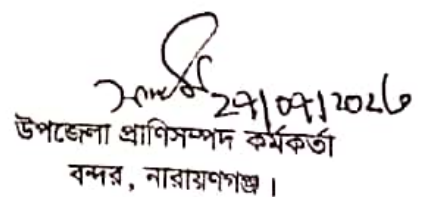 27/07/2026
উপজেলা প্রাণিসম্পদ কর্মকর্তা
বন্দর, নারায়ণগঞ্জ।